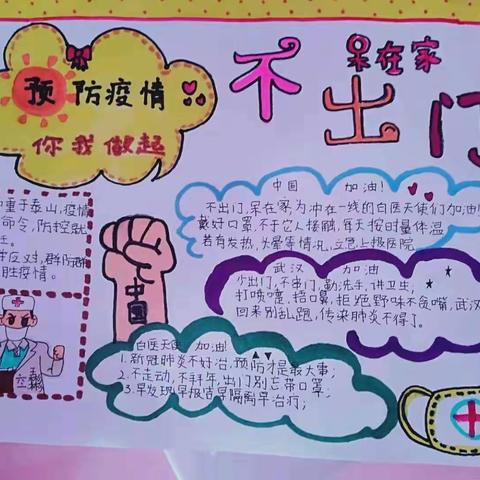 预防疫情
你我做起
呆在家
不出门
重于泰山,疫情
命令,防控就
反对,群防
胜疫情。
中国
中国 加油!
不出门,呆在家,为冲在一线的白医天使们加油!
戴好口罩,不于它人接触,每天按时量体温
若有发热,头晕等情况,立急上报医院
武汉 加油
少出门,不串门,勤洗手,讲卫生,
打喷嚏,捂口鼻,拒绝野味不贪嘴,武汉
回来别乱跑,传染肺炎不得了。
白医天使 加油!
1.新冠肺炎不好治,预防才是最大事;
2.不走动,不拜年,出门别忘带口罩;
3.早发现早报告早隔离早治疗;